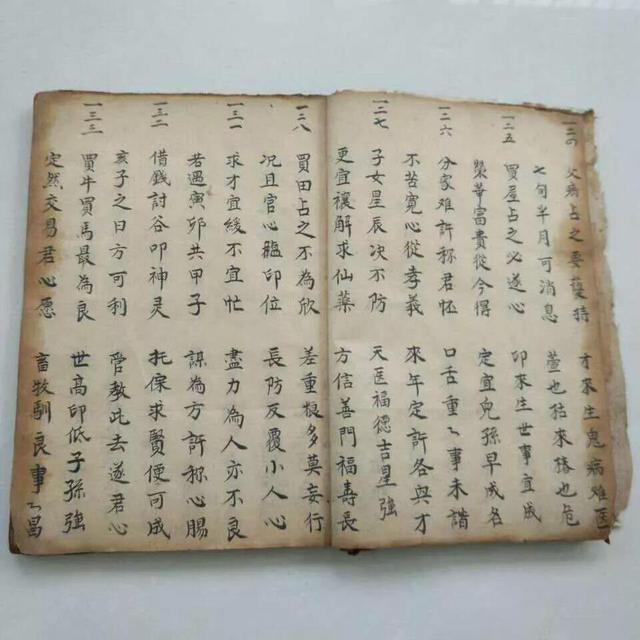 一二四 父病占之要護持 才來生鬼病难医
七旬半月可消息 萱也枯來椿也危
一二五 買屋占之必遂心 印來生世事宜成
榮華富貴從今得 定宜兒孫早成名
一二六 分家难許称君怀 口舌重々事未諧
不苦寬心從孝義 來年定許各興才
一二七 子女星辰决不防 天医福德吉星強
更宜禳解求仙藥 方信善門福壽長
一二八 買田占之不為欣 差重根多莫妄行
况且官心臨印位 長防反覆小人心
一三一 求才宜緩不宜忙 盡力為人亦不良
若遇寅卯共甲子 謀為方許称心賜
一三二 借錢討谷叩神灵 托保求賢便可成
亥子之日方可利 管教此去遂君心
一三三 買牛買馬最為良 世高印低子孫強
定然交易君心愿 畜牧馴良事々昌